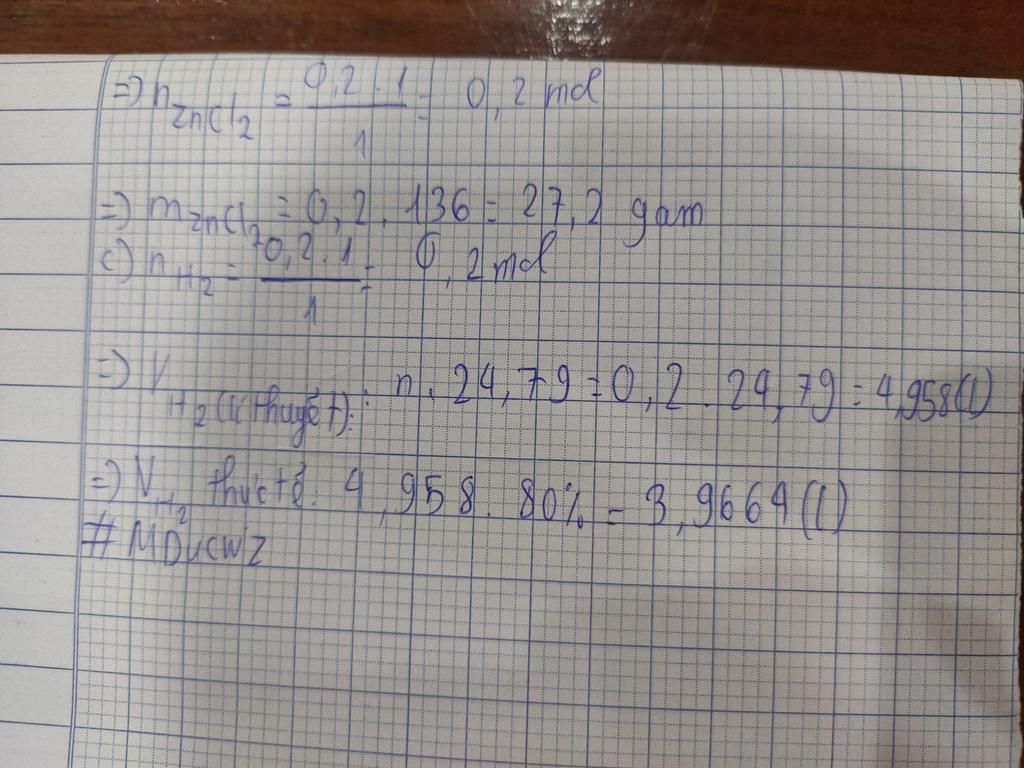 =) n ZnCl2 = 0,2 . 1 / 1 = 0,2 mol
=) m ZnCl2 = 0,2 . 136 = 27,2 gam
c) n H2 = 0,2 . 1 / 1 = 0,2 mol
=) V H2 (lí thuyết) : n . 24,79 = 0,2 . 24,79 = 4,958 (l)
=) V H2 thực tế : 4,958 . 80% = 3,9664 (l)
# MDucwiz